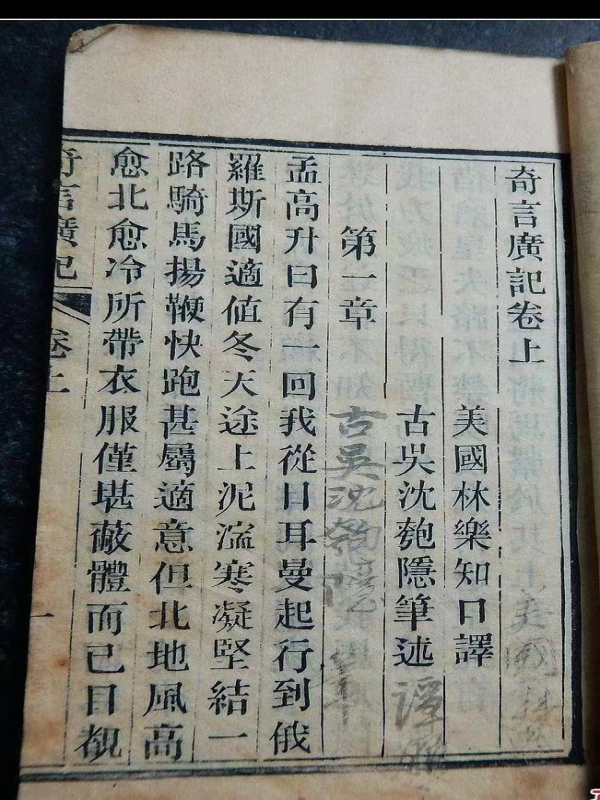 奇言廣記卷上
美國林樂知口譯
古吳沈匏隱筆述
第一章
古吳沈匏隱
孟高升曰有一回我從日耳曼起行到俄
羅斯國適值冬天途上泥濘寒凝堅結一
路騎馬揚鞭快跑甚屬適意但北地風高
愈北愈冷所帶衣服僅堪蔽體而已目覩
奇言廣記
卷上
一